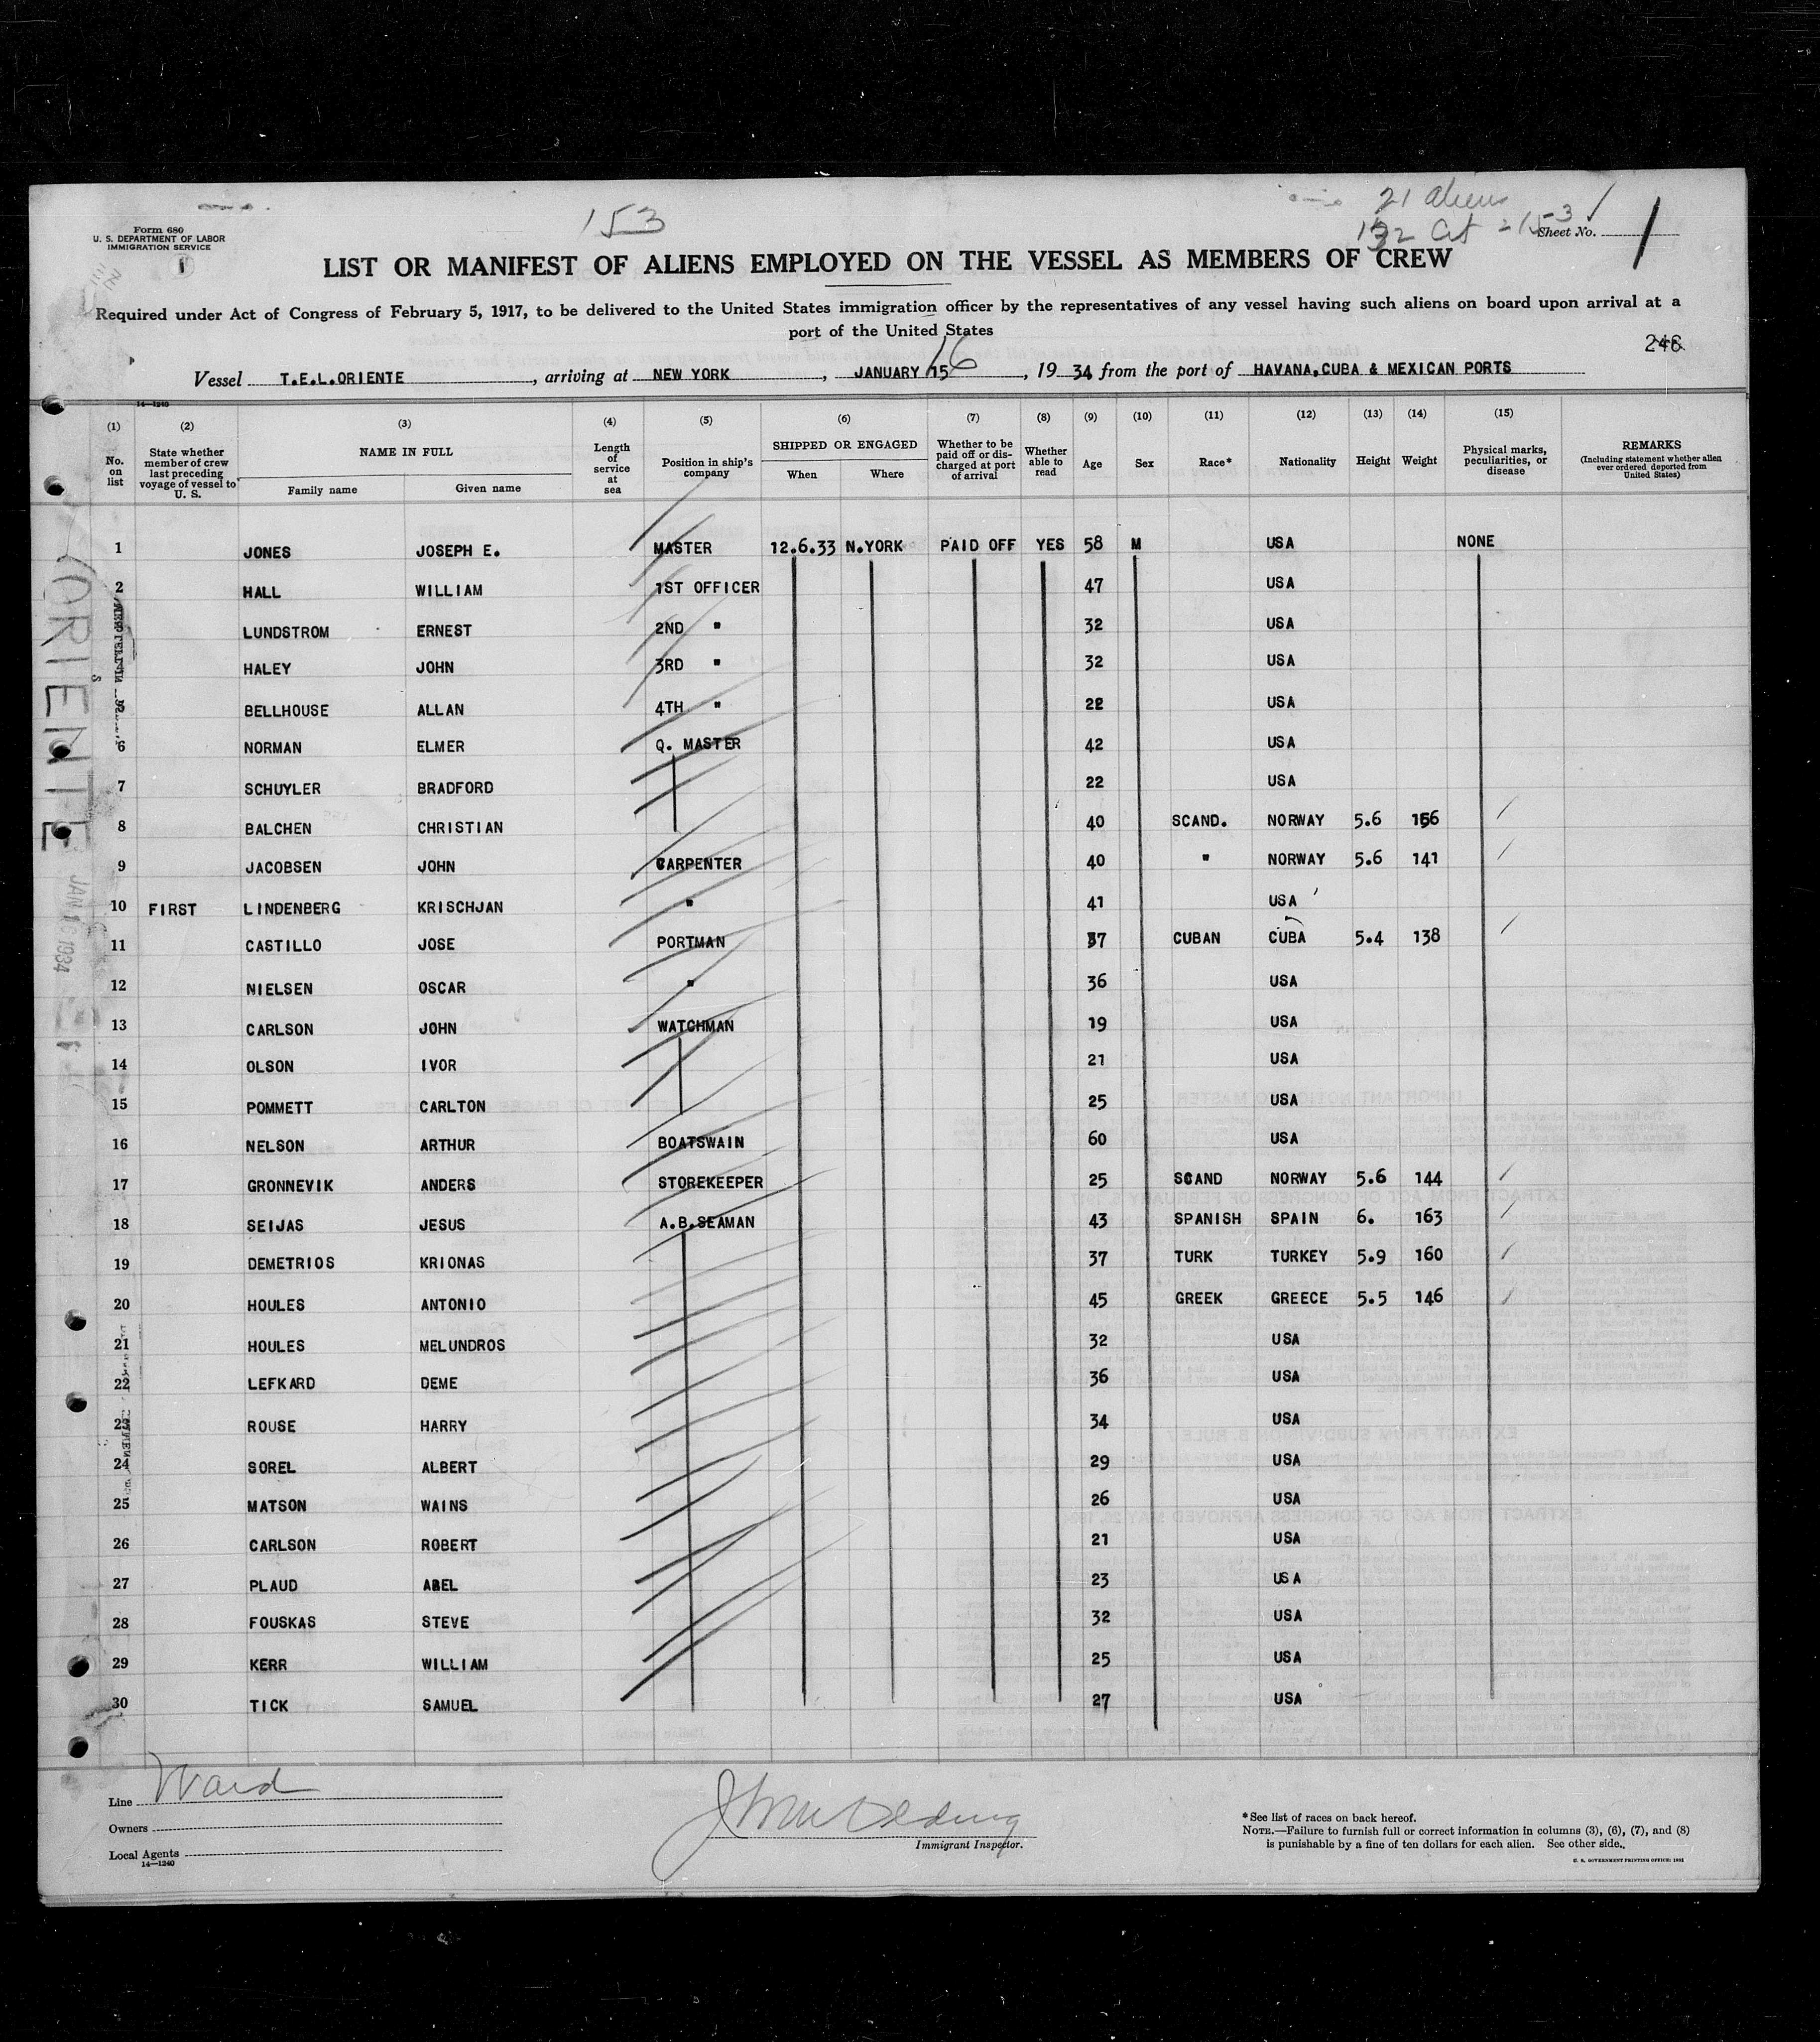 153
21 aliens
132 Cit = 153
Form 680
U. S. DEPARTMENT OF LABOR
IMMIGRATION SERVICE
Sheet No. 1
LIST OR MANIFEST OF ALIENS EMPLOYED ON THE VESSEL AS MEMBERS OF CREW
Required under Act of Congress of February 5, 1917, to be delivered to the United States immigration officer by the representatives of any vessel having such aliens on board upon arrival at a
port of the United States
246
Vessel T.E.L.ORIENTE, arriving at NEW YORK, JANUARY 15 16, 1934 from the port of HAVANA,CUBA & MEXICAN PORTS
14—1240
(1) (2) (3) (4) (5) (6) (7) (8) (9) (10) (11) (12) (13) (14) (15)
No. on list
State whether member of crew last preceding voyage of vessel to U. S.
NAME IN FULL
Family name Given name
Length of service at sea
Position in ship's company
SHIPPED OR ENGAGED
When Where
Whether to be paid off or discharged at port of arrival
Whether able to read
Age Sex Race* Nationality Height Weight
Physical marks, peculiarities, or disease
REMARKS
(Including statement whether alien ever ordered deported from United States)
1 JONES JOSEPH E. MASTER 12.6.33 N.YORK PAID OFF YES 58 M USA NONE
2 HALL WILLIAM 1ST OFFICER 47 USA
LUNDSTROM ERNEST 2ND " 32 USA
HALEY JOHN 3RD " 32 USA
BELLHOUSE ALLAN 4TH " 22 USA
6 NORMAN ELMER Q. MASTER 42 USA
7 SCHUYLER BRADFORD 22 USA
8 BALCHEN CHRISTIAN 40 SCAND. NORWAY 5.6 156
9 JACOBSEN JOHN CARPENTER 40 " NORWAY 5.6 141
10 FIRST LINDENBERG KRISCHJAN " 41 USA
11 CASTILLO JOSE PORTMAN 37 CUBAN CUBA 5.4 138
12 NIELSEN OSCAR " 36 USA
13 CARLSON JOHN WATCHMAN 19 USA
14 OLSON IVOR 21 USA
15 POMMETT CARLTON 25 USA
16 NELSON ARTHUR BOATSWAIN 60 USA
17 GRONNEVIK ANDERS STOREKEEPER 25 SCAND NORWAY 5.6 144
18 SEIJAS JESUS A.B.SEAMAN 43 SPANISH SPAIN 6. 163
19 DEMETRIOS KRIONAS 37 TURK TURKEY 5.9 160
20 HOULES ANTONIO 45 GREEK GREECE 5.5 146
21 HOULES MELUNDROS 32 USA
22 LEFKARD DEME 36 USA
23 ROUSE HARRY 34 USA
24 SOREL ALBERT 29 USA
25 MATSON WAINS 26 USA
26 CARLSON ROBERT 21 USA
27 PLAUD ABEL 23 USA
28 FOUSKAS STEVE 32 USA
29 KERR WILLIAM 25 USA
30 TICK SAMUEL 27 USA
ORIENTE
JAN 16 1934
Line Ward
Owners
Local Agents
14—1240
Immigrant Inspector.
*See list of races on back hereof.
NOTE.—Failure to furnish full or correct information in columns (3), (6), (7), and (8)
is punishable by a fine of ten dollars for each alien. See other side.
U. S. GOVERNMENT PRINTING OFFICE: 1931